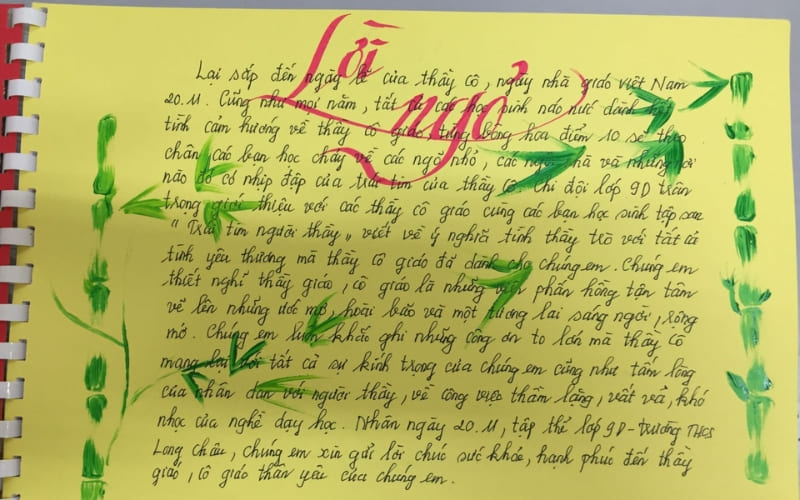 Lời
ngỏ
Lại sắp đến ngày lễ của thầy cô, ngày nhà giáo việt Nam
20.11. Cũng như mọi năm, tất cả các học sinh náo nức dành hết
tình cảm hướng về thầy cô giáo, từng bông hoa điểm 10 sẽ theo
chân các bạn học chạy về các ngõ nhỏ, các ngôi nhà và những nơi
nào đó có nhịp đập của trái tim của thầy cô. Chi đội lớp 9D trân
trọng giới thiệu với các thầy cô giáo cùng các bạn học sinh tập san
"Trái tim người thầy" viết về ý nghĩa tình thầy trò với tất cả
tình yêu thương mà thầy cô giáo đã dành cho chúng em. Chúng em
thiết nghĩ thầy giáo, cô giáo là những viên phấn hồng tận tâm
vẽ lên những ước mơ, hoài bão và một tương lai sáng ngời, rộng
mở. Chúng em luôn khắc ghi những công ơn to lớn mà thầy cô
mang lại với tất cả sự kính trọng của chúng em cũng như tấm lòng
của nhân dân với người thầy, về công việc thầm lặng, vất vả, khó
nhọc của nghề dạy học. Nhân ngày 20.11, tập thể lớp 9D - trường THCS
Long Châu, chúng em xin gửi lời chúc sức khỏe, hạnh phúc đến thầy
giáo, cô giáo thân yêu của chúng em.